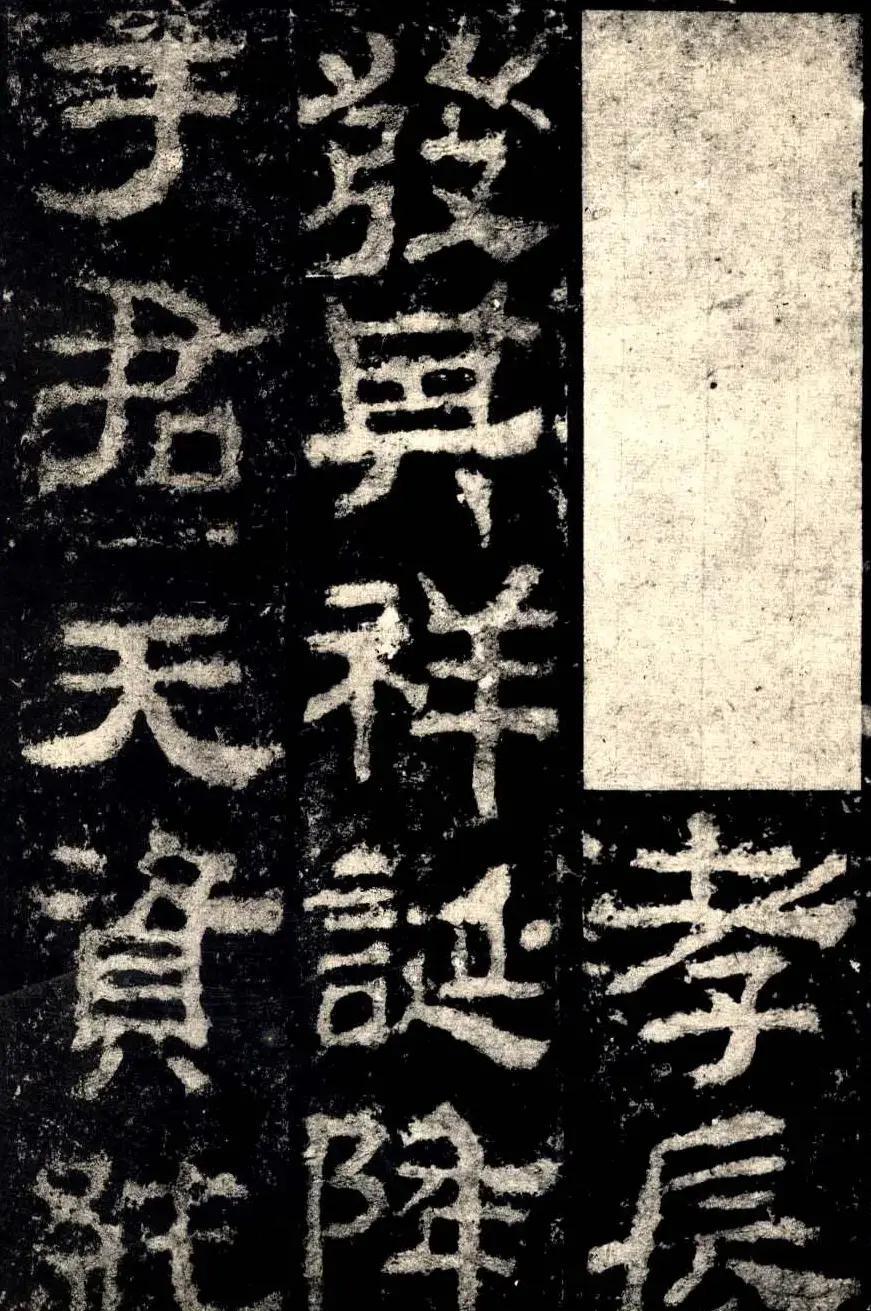 孝長
發其祥誕降
于君天資純